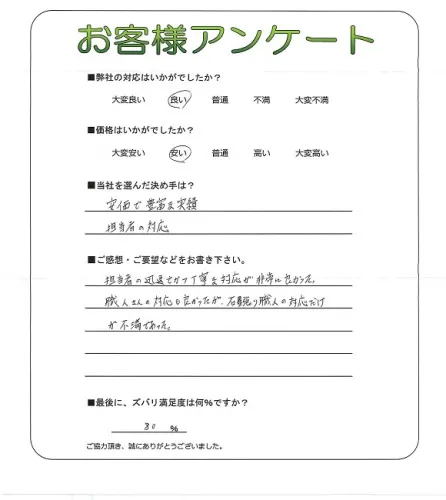 お客様アンケート
■弊社の対応はいかがでしたか？
大変良い 良い 普通 不満 大変不満
■価格はいかがでしたか？
大変安い 安い 普通 高い 大変高い
■当社を選んだ決め手は？
安価で豊富な実績
担当者の対応
■ご感想・ご要望などをお書き下さい。
担当者の迅速でかつ丁寧な対応が非常に良かった。
職人さんの対応も良かったが、石貼り職人の対応だけ
が不満であった。
■最後に、ズバリ満足度は何％ですか？
80 ％
ご協力頂き、誠にありがとうございました。